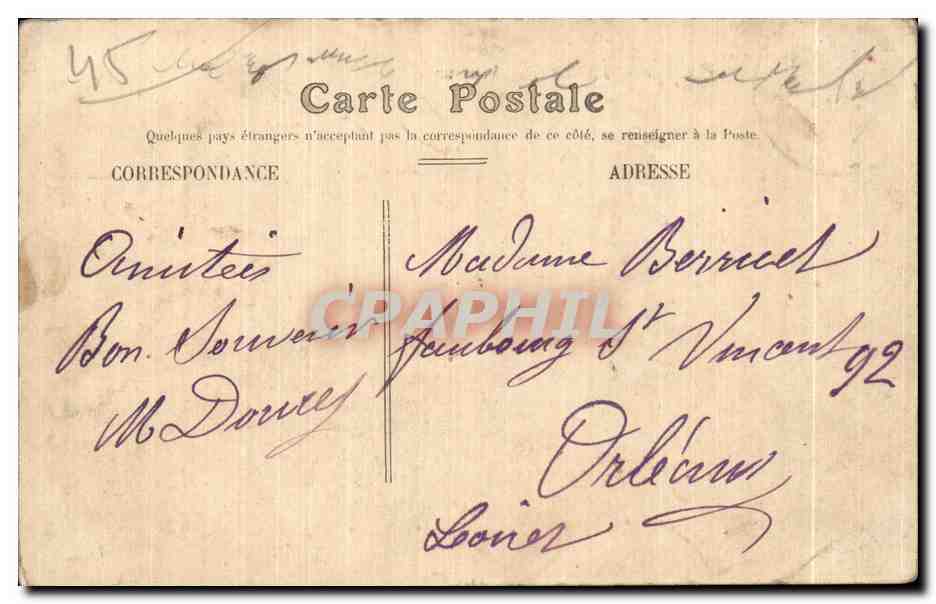 45
Carte Postale
Quelques pays étrangers n'acceptant pas la correspondance de ce côté, se renseigner à la Poste.
CORRESPONDANCE
ADRESSE
Amitiés
Bon Souvenir
M Doucey
Madame Berruet
faubourg St Vincent 92
Orléans
Loiret
CPAPHIL